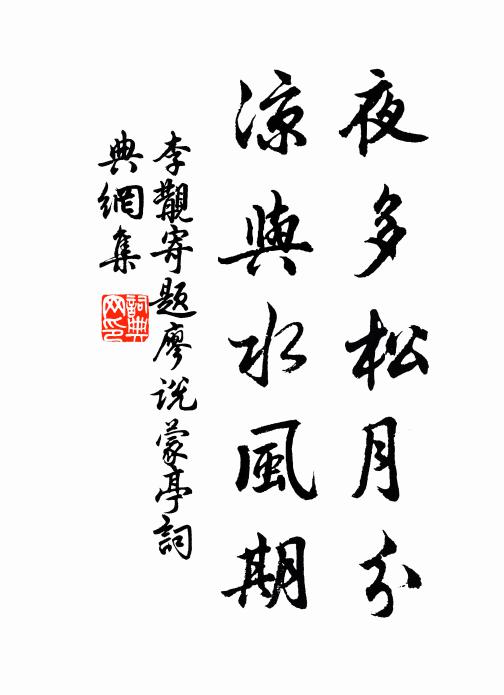 夜多松月分
涼與水風期
李覯寄題廖說蒙亭詞
典網集
詞典
网印